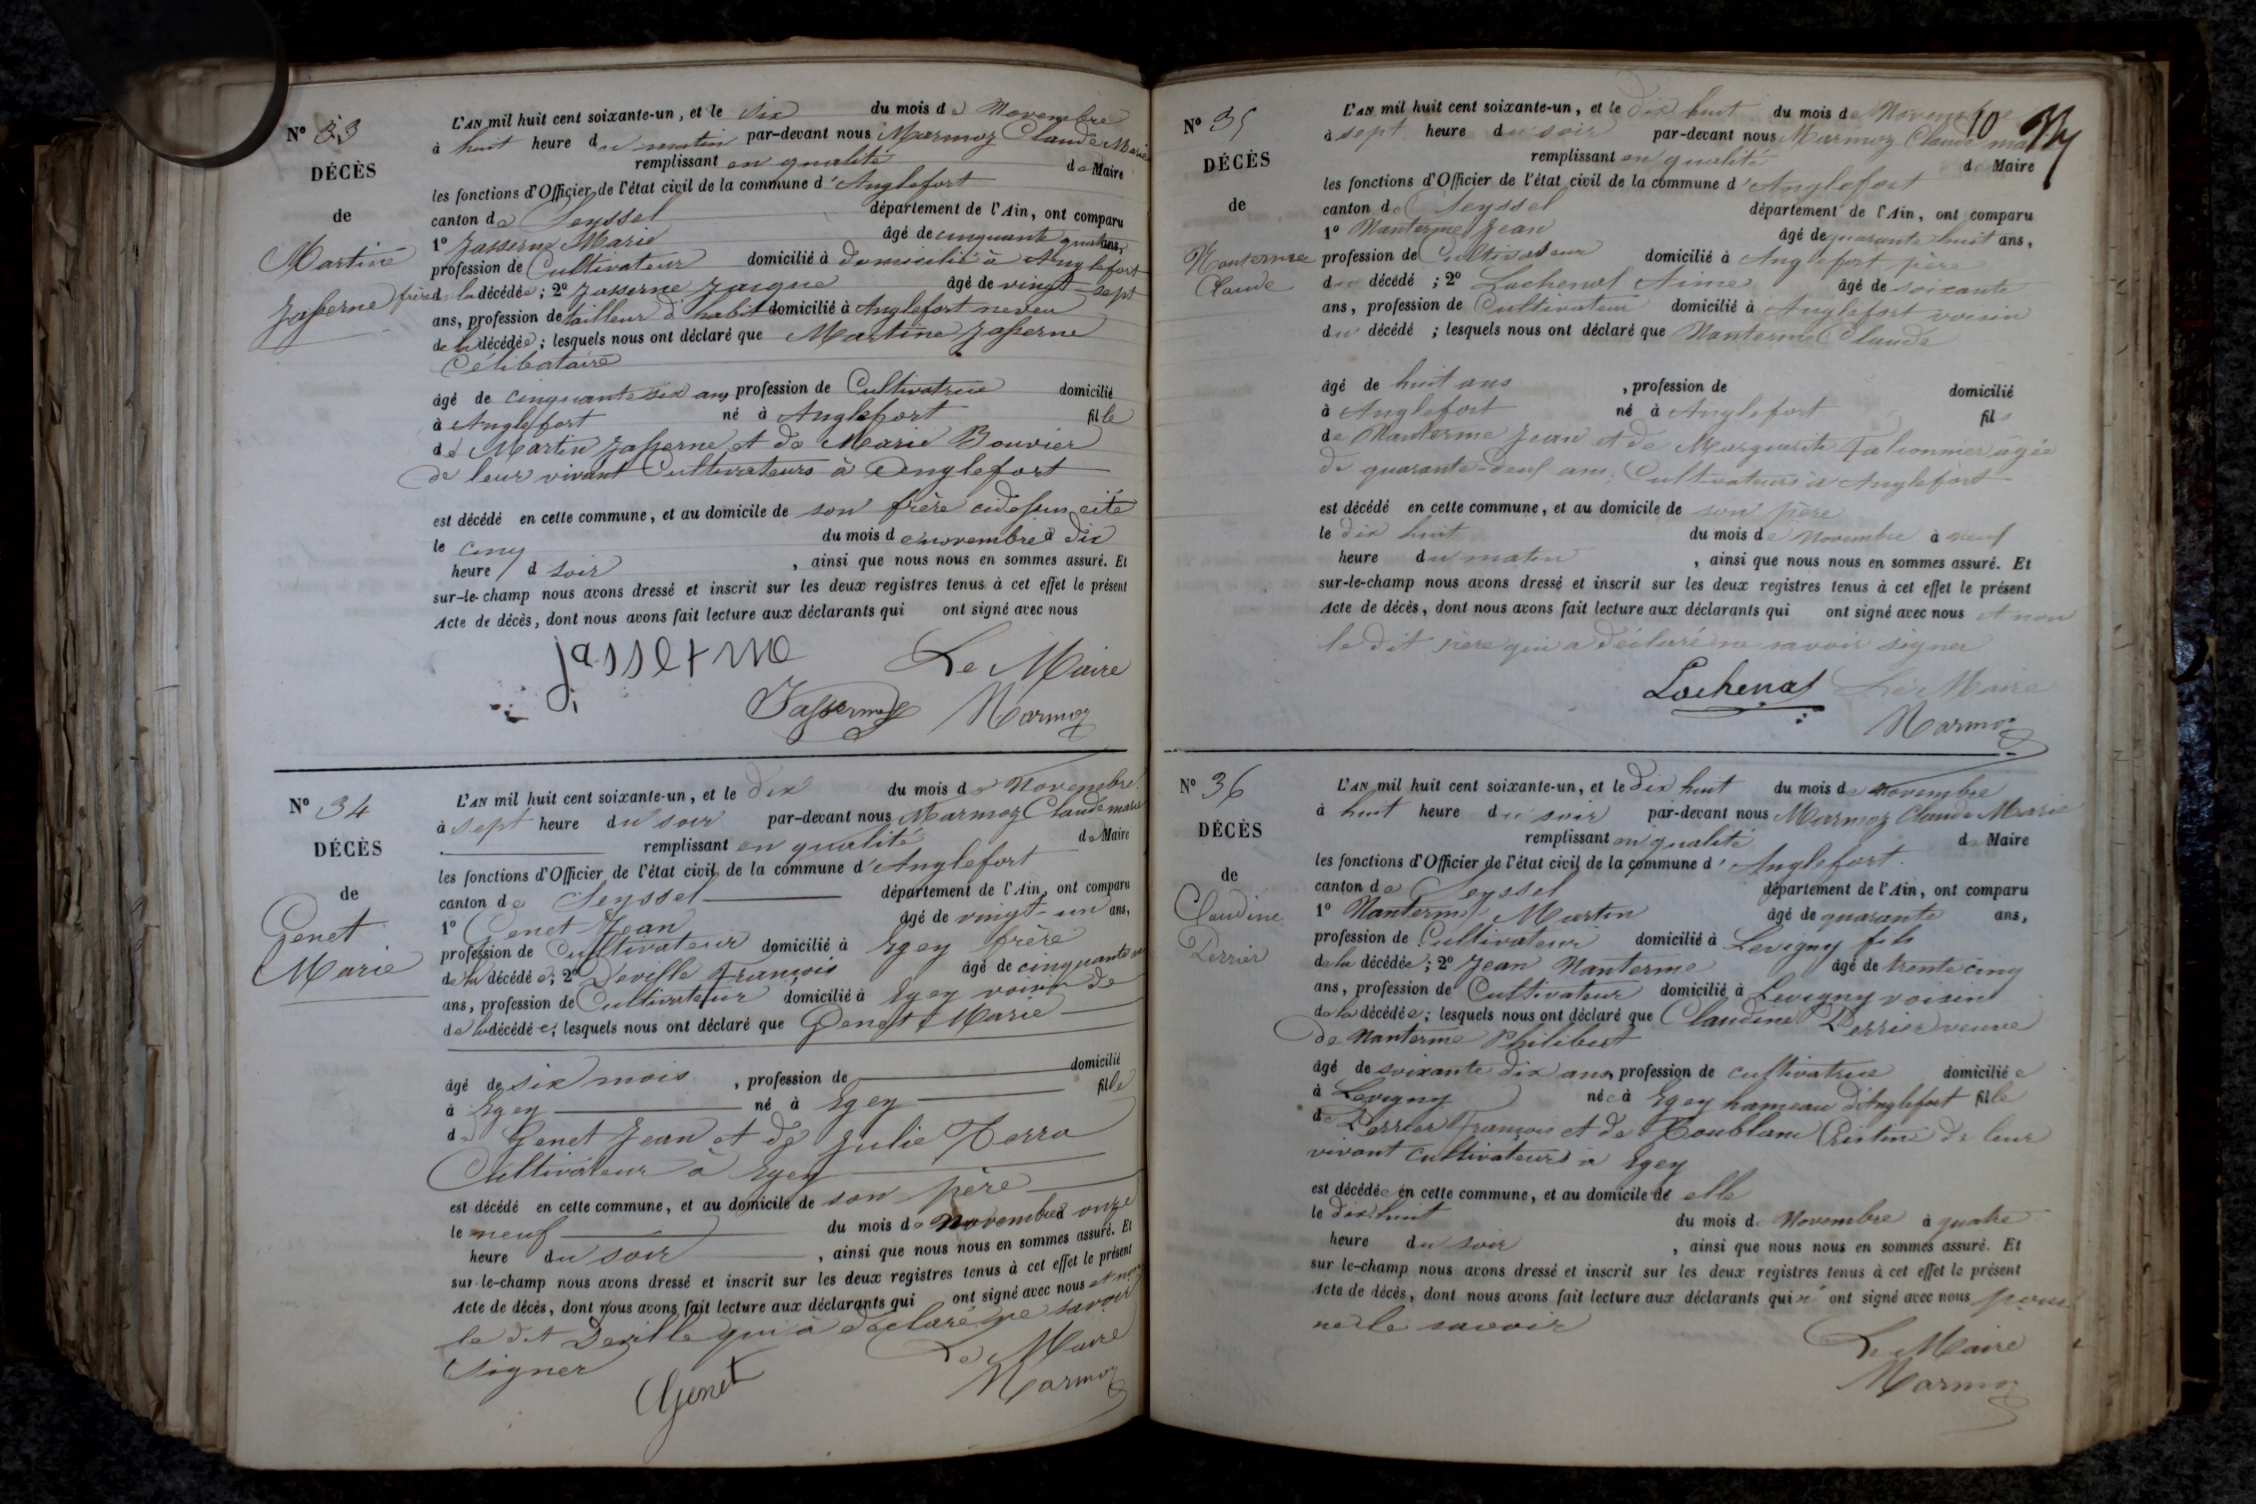 N° 33
DÉCÈS
de
Martine
Jasserne
L'AN mil huit cent soixante-un, et le six du mois de Novembre
à huit heure du matin par-devant nous Marmoz Claude Marie
remplissant en qualité de Maire
les fonctions d'Officier de l'état civil de la commune d'Anglefort
canton de Seyssel département de l'Ain, ont comparu
1° Jasserne Marie âgé de cinquante quatre ans,
profession de Cultivateur domicilié à domicilié à Anglefort
frère de la décédée ; 2° Jasserne Jaique âgé de vingt-sept
ans, profession de tailleur d'habit domicilié à Anglefort neveu
de la décédée ; lesquels nous ont déclaré que Martine Jasserne
Célibataire
âgé de cinquante six ans profession de Cultivatrice domicilié
à Anglefort né à Anglefort fille
de Martin Jasserne et de Marie Bouvier
de leur vivant Cultivateurs à Anglefort
est décédé en cette commune, et au domicile de son frère cidessus cité
le cinq du mois de novembre à dix
heure d soir , ainsi que nous nous en sommes assuré. Et
sur-le-champ nous avons dressé et inscrit sur les deux registres tenus à cet effet le présent
Acte de décès, dont nous avons fait lecture aux déclarants qui ont signé avec nous
jasserne Le Maire
Jasserne Marmoz
N° 34
DÉCÈS
de
Genet
Marie
L'AN mil huit cent soixante-un, et le dix du mois de Novembre
à sept heure du soir par-devant nous Marmoz Claude marie
remplissant en qualité de Maire
les fonctions d'Officier de l'état civil de la commune d'Anglefort
canton de Seyssel département de l'Ain, ont comparu
1° Genet Jean âgé de vingt-un ans,
profession de Cultivateur domicilié à Egey frère
de la décédée; 2° Deville François âgé de cinquante
ans, profession de Cultivateur domicilié à Egey voisin de
de la décédée; lesquels nous ont déclaré que Genet Marie
âgé de six mois , profession de domicilié
à Egey né à Egey fille
de Genet Jean et de Julie Terra
Cultivateur à Egey
est décédé en cette commune, et au domicile de son père
le neuf du mois de Novembre à onze
heure du soir , ainsi que nous nous en sommes assuré. Et
sur-le-champ nous avons dressé et inscrit sur les deux registres tenus à cet effet le présent
Acte de décès, dont nous avons fait lecture aux déclarants qui ont signé avec nous et non
le dit Deville qui a déclaré ne savoir
signer Le Maire
Genet Marmoz
10
N° 35
DÉCÈS
de
Nanterme
Claude
L'AN mil huit cent soixante-un, et le dix huit du mois de Novembre
à sept heure du soir par-devant nous Marmoz Claude marie
remplissant en qualité de Maire
les fonctions d'Officier de l'état civil de la commune d'Anglefort
canton de Seyssel département de l'Ain, ont comparu
1° Nanterme Jean âgé de quarante huit ans,
profession de Cultivateur domicilié à Anglefort père
du décédé ; 2° Lachenal Aimé âgé de soixante
ans, profession de Cultivateur domicilié à Anglefort voisin
du décédé ; lesquels nous ont déclaré que Nanterme Claude
âgé de huit ans , profession de domicilié
à Anglefort né à Anglefort fils
de Nanterme Jean et de Marguerite Falconnier âgée
de quarante-neuf ans, Cultivateurs à Anglefort
est décédé en cette commune, et au domicile de son père
le dix huit du mois de Novembre à neuf
heure du matin , ainsi que nous nous en sommes assuré. Et
sur-le-champ nous avons dressé et inscrit sur les deux registres tenus à cet effet le présent
Acte de décès, dont nous avons fait lecture aux déclarants qui ont signé avec nous et non
le dit père qui a déclaré ne savoir signer
Lachenal Le Maire
Marmoz
N° 36
DÉCÈS
de
Claudine
Perrier
L'AN mil huit cent soixante-un, et le dix huit du mois de Novembre
à huit heure du soir par-devant nous Marmoz Claude Marie
remplissant en qualité de Maire
les fonctions d'Officier de l'état civil de la commune d'Anglefort
canton de Seyssel département de l'Ain, ont comparu
1° Nanterme Martin âgé de quarante ans,
profession de Cultivateur domicilié à Levigny fils
de la décédée ; 2° Jean Nanterme âgé de trente cinq
ans, profession de Cultivateur domicilié à Levigny voisin
de la décédée ; lesquels nous ont déclaré que Claudine Perrier veuve
de Nanterme Philibert
âgé de soixante dix ans, profession de cultivatrice domiciliée
à Levigny née à Egey hameau d'Anglefort fille
de Perrier François et de Toublanc Cristine de leur
vivant cultivateurs à Egey
est décédée en cette commune, et au domicile de elle
le dix huit du mois de Novembre à quatre
heure du soir , ainsi que nous nous en sommes assuré. Et
sur le-champ nous avons dressé et inscrit sur les deux registres tenus à cet effet le présent
Acte de décès, dont nous avons fait lecture aux déclarants qui n'ont signé avec nous pour
ne le savoir
Le Maire
Marmoz